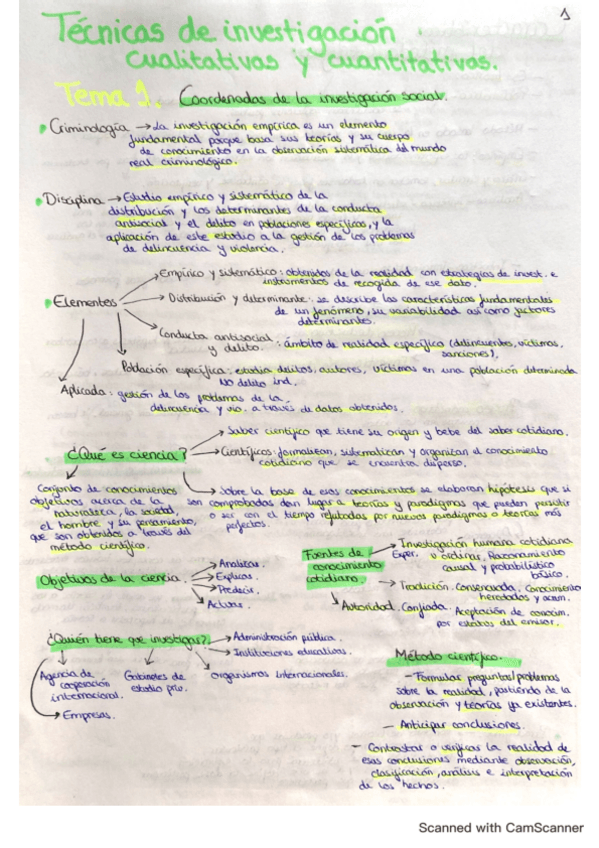 1
Técnicas de investigación
cualitativas y cuantitativas.
Tema 1. Coordenadas de la investigación social.
Criminología → La investigación empírica es un elemento
fundamental porque basa sus teorías y su cuerpo
de conocimiento en la observación sistemática del mundo
real criminológico.
Disciplina → Estudio empírico y sistemático de la
distribución y los determinantes de la conducta
antisocial y el delito en poblaciones específicas, y la
aplicación de este estudio a la gestión de los problemas
de delincuencia y violencia.
Elementos
Empírico y sistemático: obtenidos de la realidad con estrategias de invest. e
instrumentos de recogida de ese dato.
Distribución y determinante: se describe las características fundamentales
de un fenómeno, su variabilidad así como factores
determinantes.
Conducta antisocial
y delito: ámbito de realidad específica (delincuentes, víctimas,
sanciones),
Población específica: estudia delitos, autores, víctimas en una población determinada
No delito ind.
Aplicada: gestión de los problemas de la
delincuencia y vio. a través de datos obtenidos.
¿Qué es ciencia?
Saber científico que tiene su origen y bebe del saber cotidiano.
Científicos: formalizan, sistematizan y organizan el conocimiento
cotidiano que se encuentra disperso.
Conjunto de conocimientos
objetivos acerca de la
naturaleza, la sociedad,
el hombre y su pensamiento,
que son obtenidos a través del
método científico.
Sobre la base de esos conocimientos se elaboran hipótesis que si
son comprobadas dan lugar a teorías y paradigmas que pueden persistir
o ser con el tiempo refutadas por nuevos paradigmas o teorías más
perfectos.
Objetivos de la ciencia.
Analizar.
Explicar.
Predecir.
Actuar.
Fuentes de
conocimiento
cotidiano.
Investigación humana cotidiana
Exper. v ordinas, Razonamiento
causal y probabilístico
básico.
Tradición. Conservada, Conocimiento
heredados y acum.
Autoridad. Confiada: Aceptación de conocim.
por estatus del emisor.
¿Quién tiene que investigar?
Administración pública.
Instituciones educativas.
Organismos internacionales.
Gabinetes de
estudio priv.
Agencia de
cooperación
internacional.
Empresas.
Método científico.
- Formular preguntas/problemas
sobre la realidad, partiendo de la
observación y teorías ya existentes.
- Anticipar conclusiones.
- Contrastar o verificar la realidad de
esas conclusiones mediante observación,
clasificación, análisis e interpretación
de los hechos.
Scanned with CamScanner